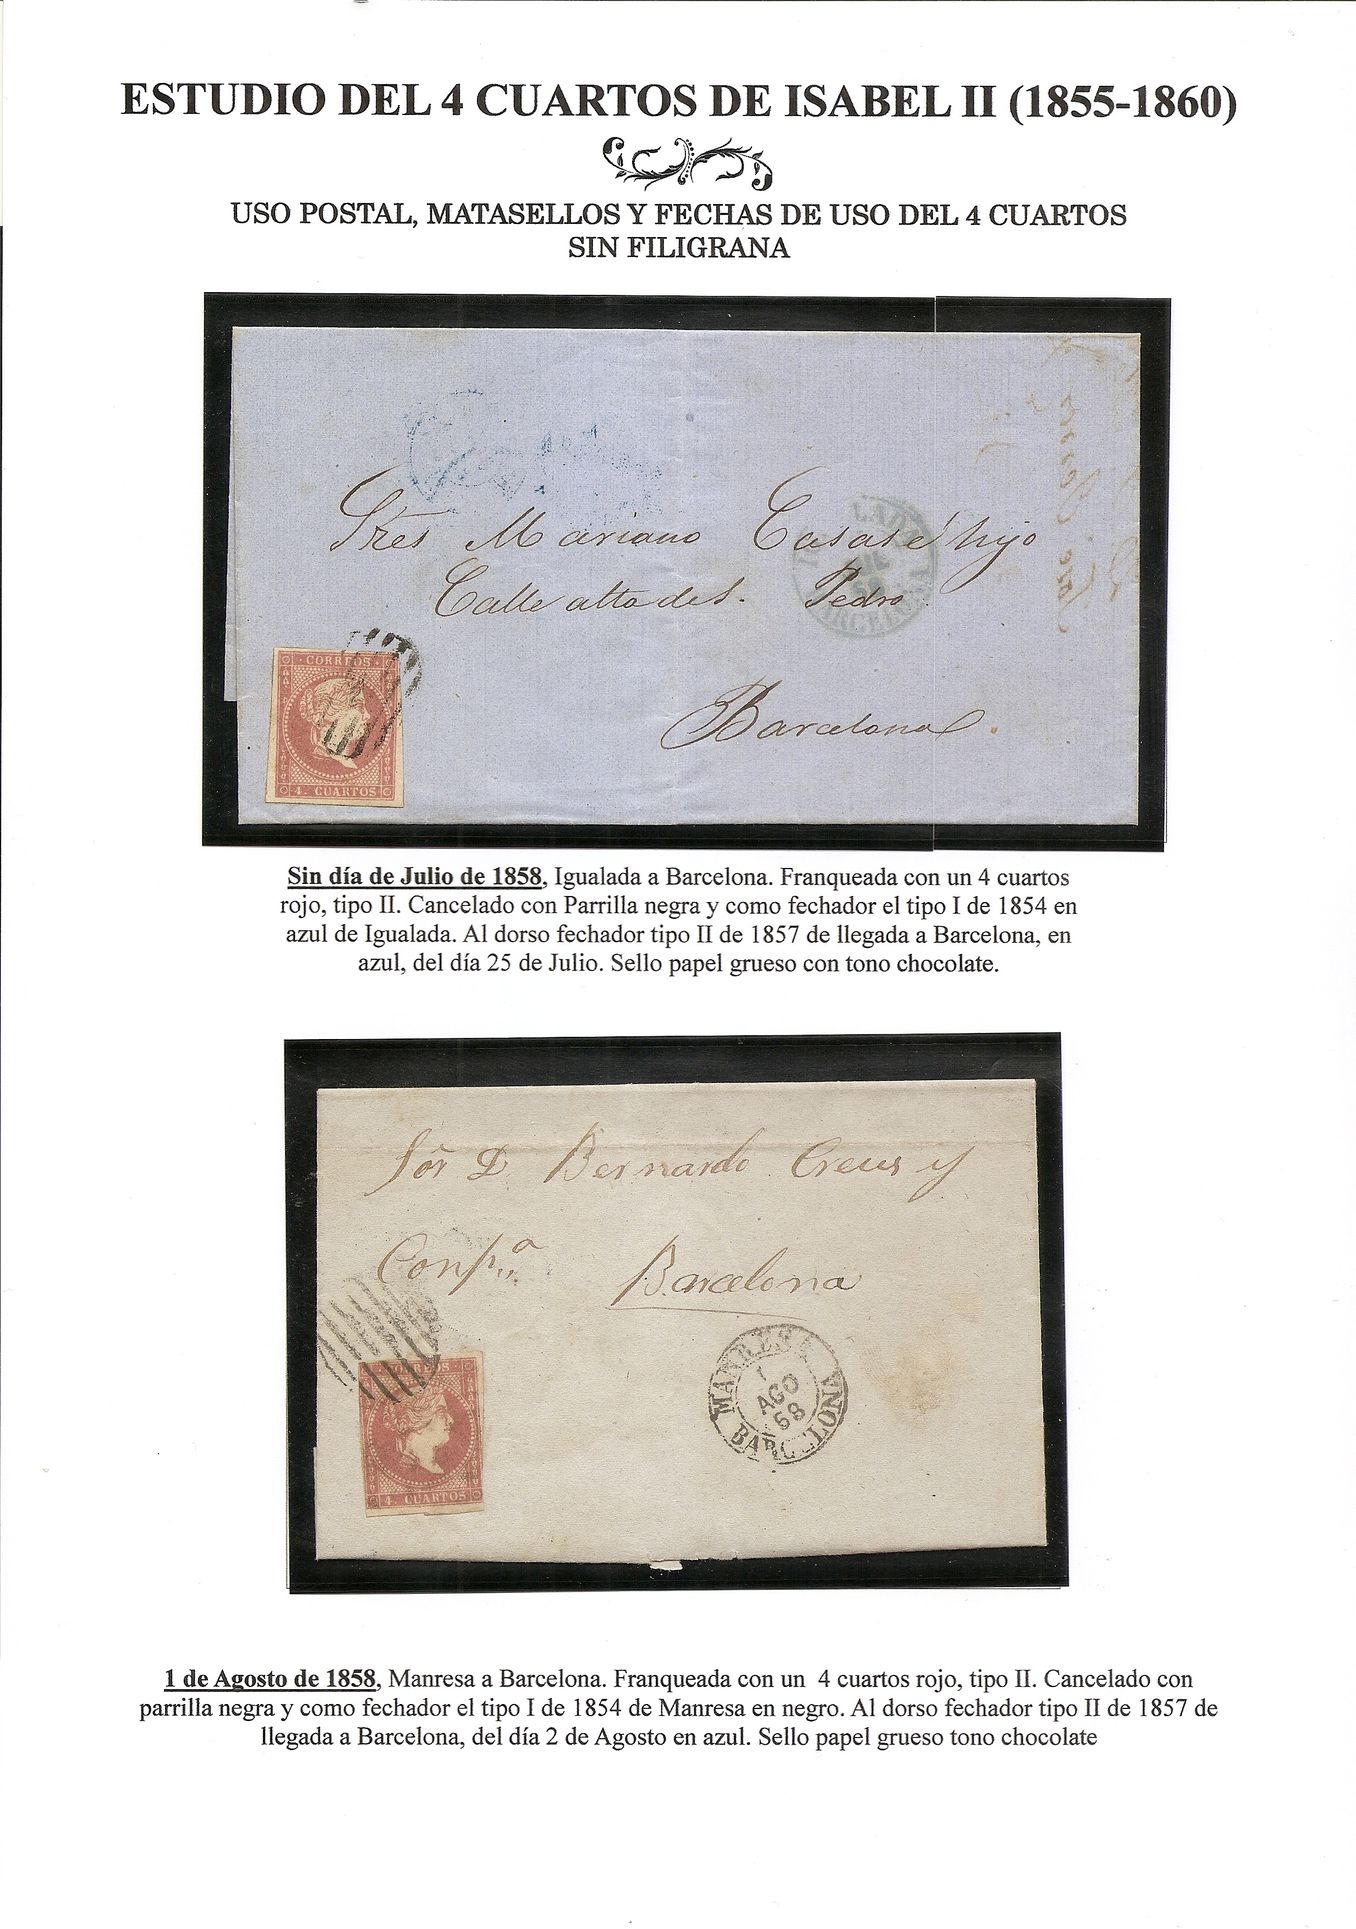 ESTUDIO DEL 4 CUARTOS DE ISABEL II (1855-1860)
USO POSTAL, MATASELLOS Y FECHAS DE USO DEL 4 CUARTOS
SIN FILIGRANA
Sres Mariano Casas é hijo
Calle alta de S. Pedro
Barcelona
BARCELONA
CORREOS
4. CUARTOS
Sin día de Julio de 1858, Igualada a Barcelona. Franqueada con un 4 cuartos
rojo, tipo II. Cancelado con Parrilla negra y como fechador el tipo I de 1854 en
azul de Igualada. Al dorso fechador tipo II de 1857 de llegada a Barcelona, en
azul, del día 25 de Julio. Sello papel grueso con tono chocolate.
Sor D Bernardo Creus y
Compª
Barcelona
MANRESA
1
AGO
58
BARCELONA
CORREOS
4. CUARTOS
1 de Agosto de 1858, Manresa a Barcelona. Franqueada con un 4 cuartos rojo, tipo II. Cancelado con
parrilla negra y como fechador el tipo I de 1854 de Manresa en negro. Al dorso fechador tipo II de 1857 de
llegada a Barcelona, del día 2 de Agosto en azul. Sello papel grueso tono chocolate